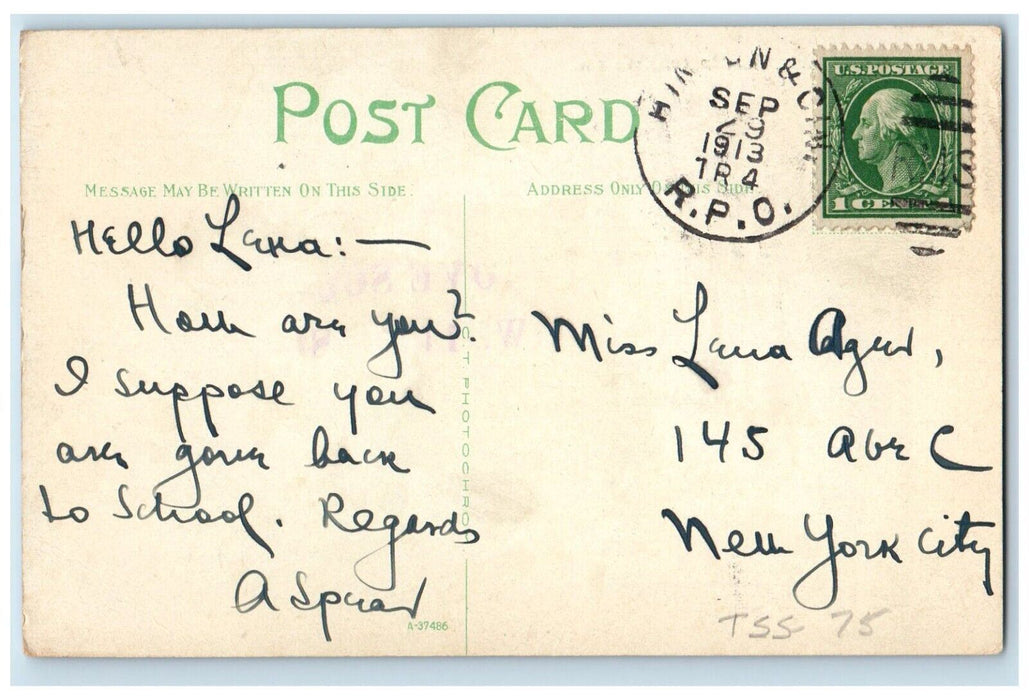 POST CARD
MESSAGE MAY BE WRITTEN ON THIS SIDE.
ADDRESS ONLY ON THIS SIDE
SEP
1913
TR 4
R.P.O.
U.S. POSTAGE
1 CENT
Hello Lena: —
How are you?
I suppose you
are gone back
to School. Regards
A Spear
A-37486
PHOTOCHRO
Miss Lena Ager,
145 Ave C
New York City
TSS 75